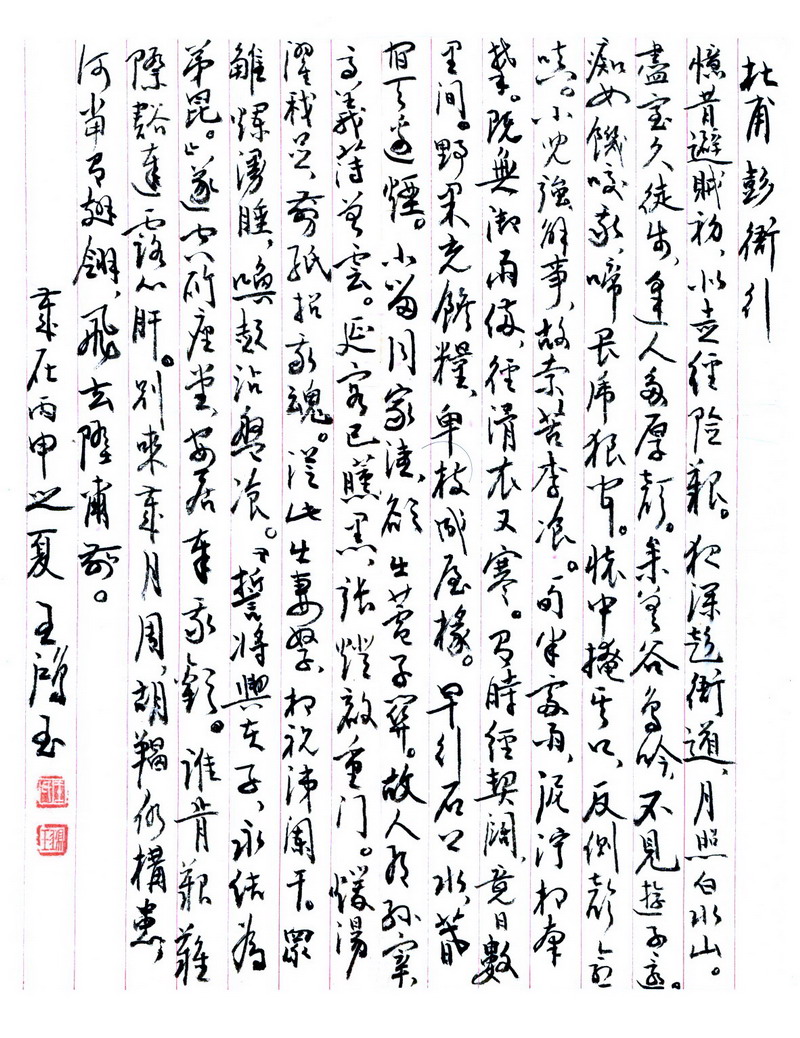 杜甫彭衙行
憶昔避賊初、北走經險艱。夜深彭衙道、月照白水山。
盡室久徒步、逢人多厚顏。參差谷鳥吟、不見遊子還。
痴女饑咬我、啼畏虎狼聞。懷中掩其口、反側聲愈
嗔。小兒強解事、故索苦李飡。一旬半雷雨、泥濘相牽
攀。既無禦雨備、徑滑衣又寒。有時經契闊、竟日數
里間。野果充餱糧、卑枝成屋椽。早行石上水、暮
宿天邊煙。小留同家洼、欲出蘆子關。故人有孫宰、
高義薄曾雲。延客已曛黑、張燈啟重門。煖湯
濯我足、剪紙招我魂。從此出妻孥、相視涕闌干。眾
雛爛漫睡、喚起沾盤飡。「誓將與夫子、永結為
弟昆。」遂空所座堂、安居奉我歡。誰肯艱難
際、豁達露心肝。別來歲月周、胡羯仍構患、
何當有翅翎、飛去墮爾前。
歲在丙申之夏 王鴻玉